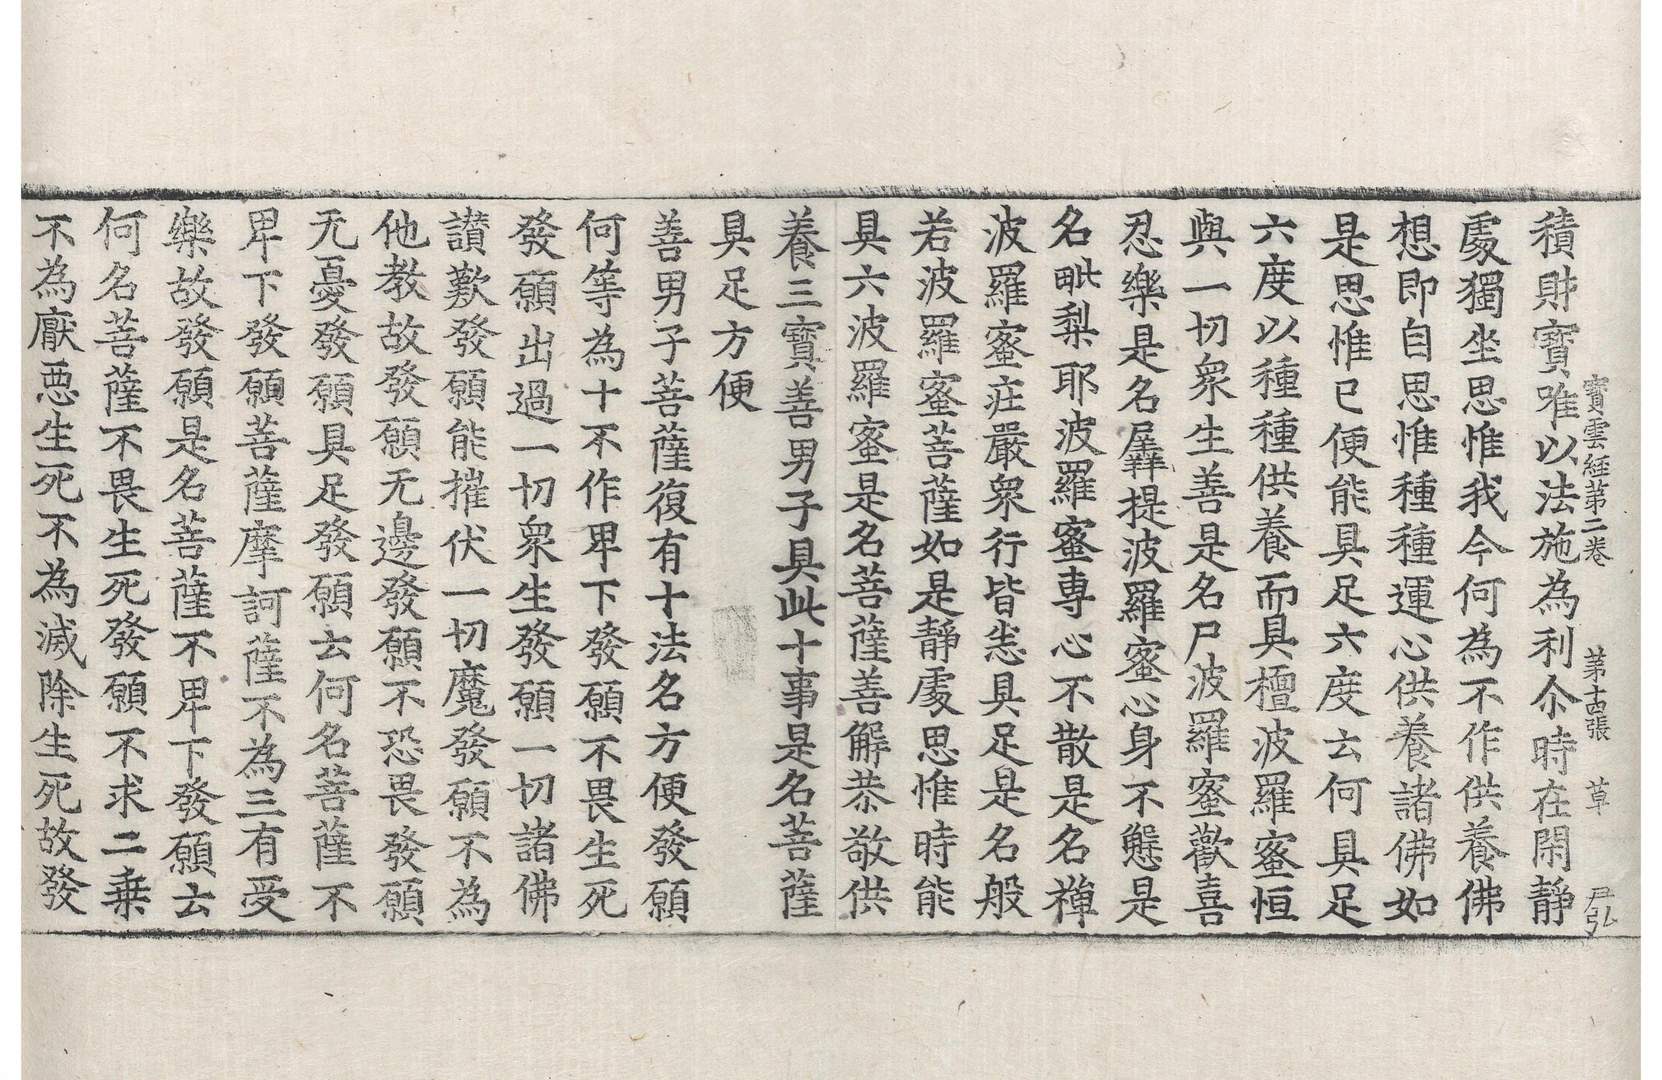 寶雲経第二卷 第十四張 草 尹弘
積財寶唯以法施為利尒時在閑靜
䖏獨坐思惟我今何為不作供養佛
想即自思惟種種運心供養諸佛如
是思惟已便能具足六度云何具足
六度以種種供養而具檀波羅蜜恒
與一切衆生善是名尸波羅蜜歡喜
忍樂是名羼提波羅蜜心身不懈是
名毗梨耶波羅蜜專心不散是名禪
波羅蜜莊嚴衆行皆悉具足是名般
若波羅蜜菩薩如是靜䖏思惟時能
具六波羅蜜是名菩薩善解恭敬供
養三寶善男子具此十事是名菩薩
具足方便
善男子菩薩復有十法名方便發願
何等為十不作卑下發願不畏生死
發願出過一切衆生發願一切諸佛
讃歎發願能摧伏一切魔發願不為
他教故發願无邊發願不恐畏發願
无憂發願具足發願云何名菩薩不
卑下發願菩薩摩訶薩不為三有受
樂故發願是名菩薩不卑下發願云
何名菩薩不畏生死發願不求二乗
不為厭惡生死不為滅除生死故發